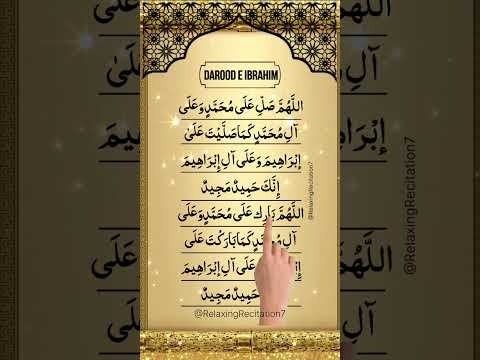 DAROOD E IBRAHIM
اللَّهُمَّ صَلِّ عَلَى مُحَمَّدٍ وَعَلَى
آلِ مُحَمَّدٍ كَمَا صَلَّيْتَ عَلَىٰ
إِبْرَاهِيمَ وَعَلَى آلِ إِبْرَاهِيمَ
إِنَّكَ حَمِيدٌ مَجِيدٌ
اللَّهُمَّ بَارِك عَلَى مُحَمَّدٍ وَعَلَى
آلِ مُحَمَّدٍ كَمَا بَارَكْتَ عَلَى
عَلَى آلِ إِبْرَاهِيمَ
حَمِيدٌ مَجِيدٌ
@RelaxingRecitation7
@RelaxingRecitation7
@RelaxingRecitation7